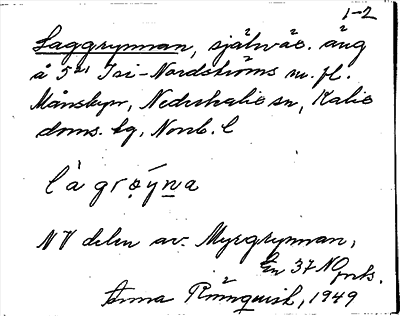 1-2
Laggrynnan, självväx. äng
å 5²¹ Isi-Nordströms m. fl.
Månsbyn, Nederkalix sn, Kalix
doms. tg, Norrb. l
làgrøyna
NV delen av Myrgrynnan,
En 37 NO
Anna Rönnquist, 1949